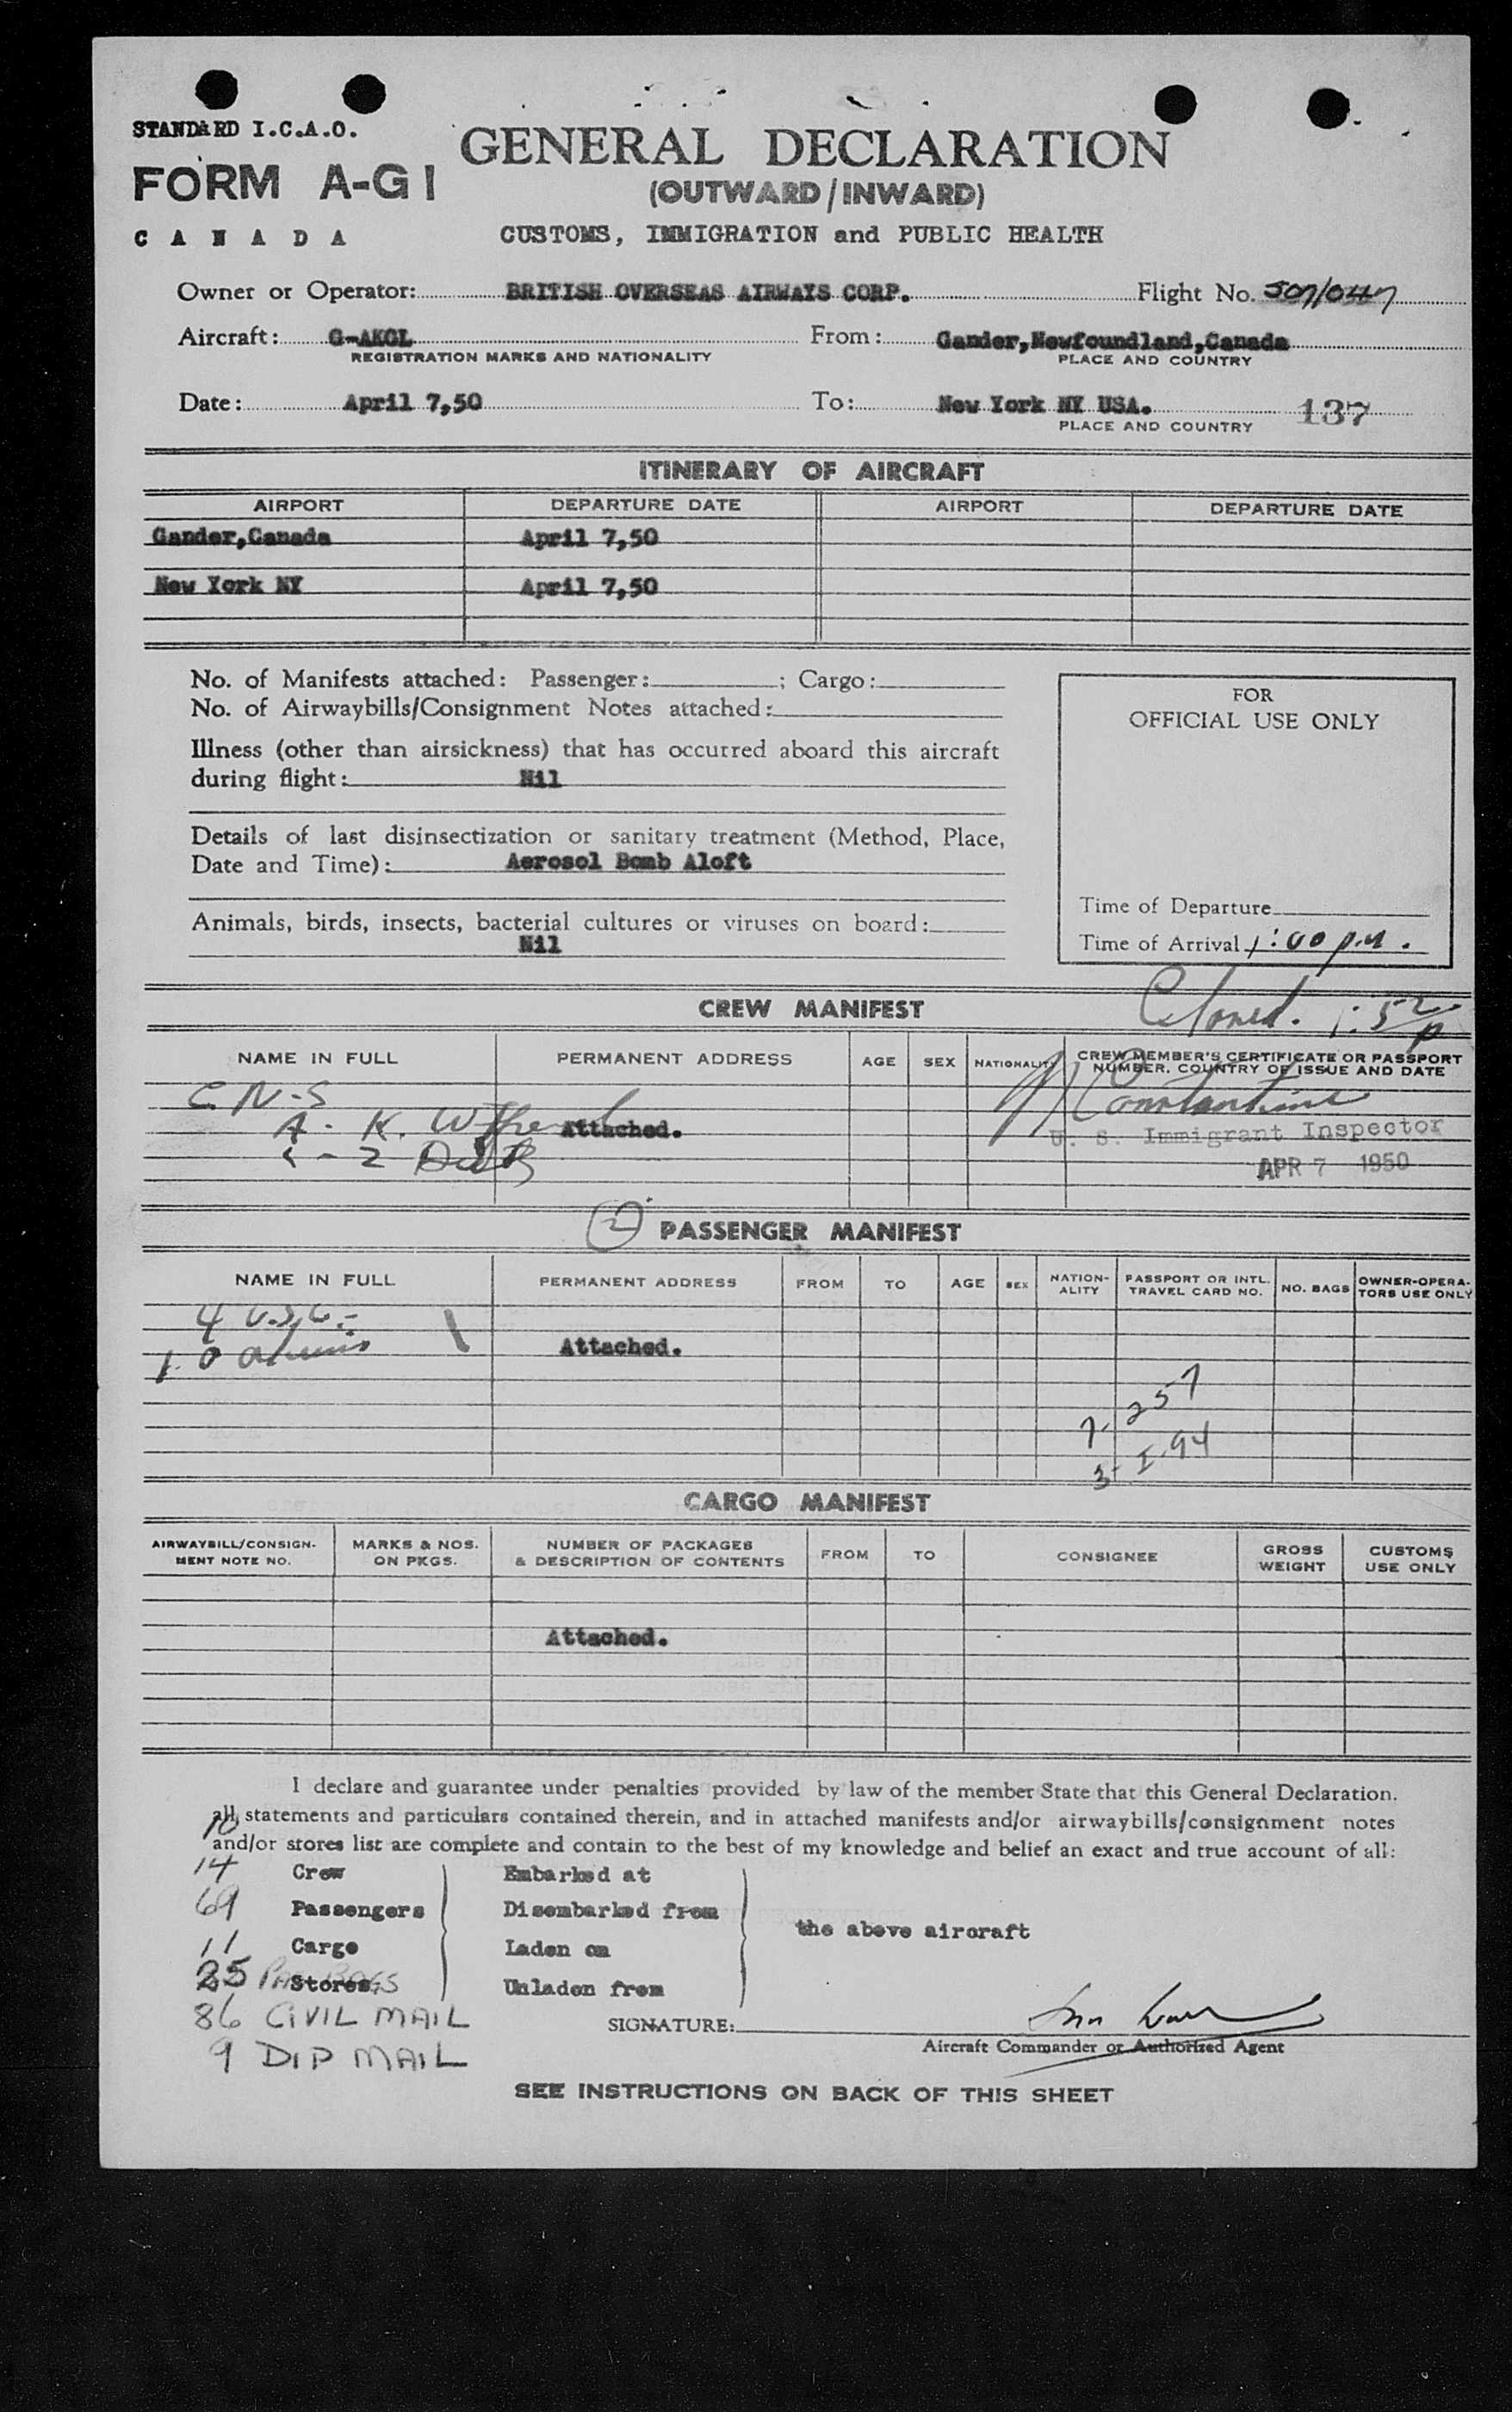 STANDARD I.C.A.O.
FORM A-G1
CANADA
GENERAL DECLARATION
(OUTWARD/INWARD)
CUSTOMS, IMMIGRATION and PUBLIC HEALTH
Owner or Operator: BRITISH OVERSEAS AIRWAYS CORP. Flight No. 507/047
Aircraft: G-AKGL From: Gander,Newfoundland,Canada
REGISTRATION MARKS AND NATIONALITY PLACE AND COUNTRY
Date: April 7,50 To: New York NY USA. 137
PLACE AND COUNTRY
ITINERARY OF AIRCRAFT
AIRPORT DEPARTURE DATE AIRPORT DEPARTURE DATE
Gander,Canada April 7,50
New York NY April 7,50
No. of Manifests attached: Passenger: ; Cargo:
No. of Airwaybills/Consignment Notes attached:
Illness (other than airsickness) that has occurred aboard this aircraft
during flight: Nil
Details of last disinsectization or sanitary treatment (Method, Place,
Date and Time): Aerosol Bomb Aloft
Animals, birds, insects, bacterial cultures or viruses on board:
Nil
FOR
OFFICIAL USE ONLY
Time of Departure
Time of Arrival 1:00 p.m.
CREW MANIFEST
NAME IN FULL PERMANENT ADDRESS AGE SEX NATIONALITY CREW MEMBER'S CERTIFICATE OR PASSPORT
NUMBER, COUNTRY OF ISSUE AND DATE
Constantine
Attached.
U. S. Immigrant Inspector
APR 7 1950
2 PASSENGER MANIFEST
NAME IN FULL PERMANENT ADDRESS FROM TO AGE SEX NATION-
ALITY PASSPORT OR INTL.
TRAVEL CARD NO. NO. BAGS OWNER-OPERA-
TORS USE ONLY
Attached.
7- 257
3- I-94
CARGO MANIFEST
AIRWAYBILL/CONSIGN-
MENT NOTE NO. MARKS & NOS.
ON PKGS. NUMBER OF PACKAGES
& DESCRIPTION OF CONTENTS FROM TO CONSIGNEE GROSS
WEIGHT CUSTOMS
USE ONLY
Attached.
I declare and guarantee under penalties provided by law of the member State that this General Declaration.
all statements and particulars contained therein, and in attached manifests and/or airwaybills/consignment notes
and/or stores list are complete and contain to the best of my knowledge and belief an exact and true account of all:
10
14 Crew Embarked at
69 Passengers Disembarked from
the above aircraft
11 Cargo Laden on
25 Stores Unladen from
86 CIVIL MAIL
9 DIP MAIL
SIGNATURE:
Aircraft Commander or Authorized Agent
SEE INSTRUCTIONS ON BACK OF THIS SHEET